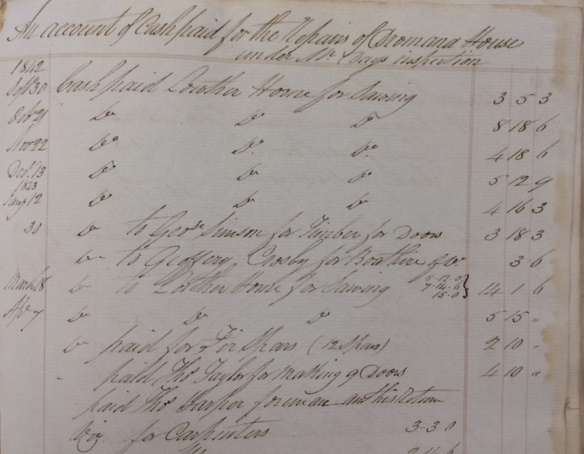 An account of Cash paid for the Repairs of Dromana House
under Mr inspection
1842
Sept 30 Cash paid Lowther Home for Sawing 3 5 3
Oct 21 Do Do Do 8 18 6
Nov 22 Do Do Do 4 18 6
Dec. 13 Do Do Do 5 12 9
Do Do Do 4 16 3
30 Do to Geo. Simson for Timber for Doors 3 18 3
Do to Crosby for 3 6
March 18 Do to Lowther Home for Sawing 14 1 6
Apr 7 Do Do Do 5 15 "
Do paid for Fir Spars (12 Spars) 2 10 -
- paid Tho Taylor for making 9 Doors 4 10 "
paid Tho Harper foreman
Viz for Carpenters 3-3-0